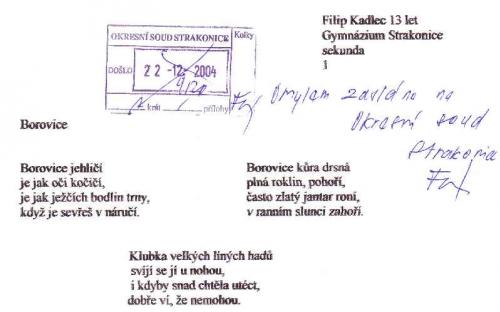 Filip Kadlec 13 let
Gymnázium Strakonice
sekunda
1
OKRESNÍ SOUD STRAKONICE
Kolky
DOŠLO 22 -12- 2004
krát přílohy
Omylem zasláno na
Okresní soud
Strakonice
Borovice
Borovice jehličí
je jak oči kočičí,
je jak ježčích bodlin trny,
když je sevřeš v náručí.
Borovice kůra drsná
plná roklin, pohoří,
často zlatý jantar roní,
v ranním slunci zahoří.
Klubka velkých líných hadů
svíjí se jí u nohou,
i kdyby snad chtěla utéct,
dobře ví, že nemohou.